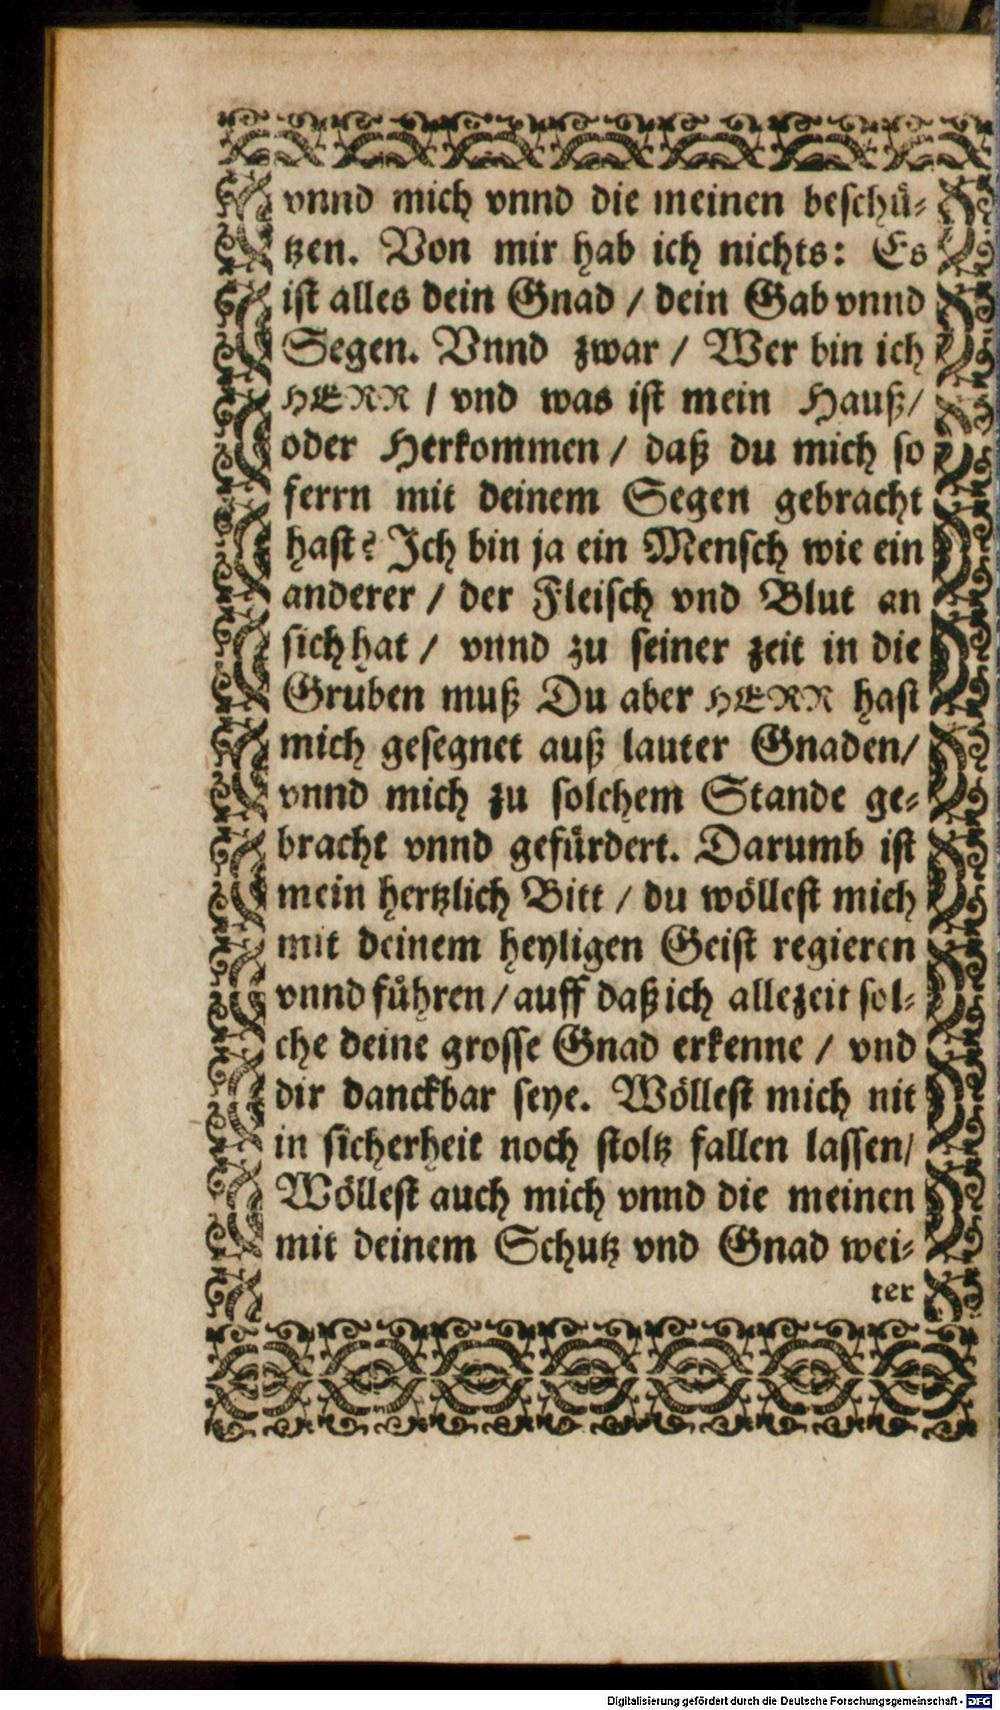 vnnd mich vnnd die meinen beschü⸗
tzen. Von mir hab ich nichts: Es
ist alles dein Gnad / dein Gab vnnd
Segen. Vnnd zwar / Wer bin ich
HERR / vnd was ist mein Hauß/
oder Herkommen / daß du mich so
ferrn mit deinem Segen gebracht
hast? Jch bin ja ein Mensch wie ein
anderer / der Fleisch vnd Blut an
sich hat / vnnd zu seiner zeit in die
Gruben muß Du aber HERR hast
mich gesegnet auß lauter Gnaden/
vnnd mich zu solchem Stande ge⸗
bracht vnnd gefürdert. Darumb ist
mein hertzlich Bitt / du wöllest mich
mit deinem heyligen Geist regieren
vnnd führen / auff daß ich allezeit sol⸗
che deine grosse Gnad erkenne / vnd
dir danckbar seye. Wöllest mich nit
in sicherheit noch stoltz fallen lassen/
Wöllest auch mich vnnd die meinen
mit deinem Schutz vnd Gnad wei⸗
ter
Digitalisierung gefördert durch die Deutsche Forschungsgemeinschaft - DFG